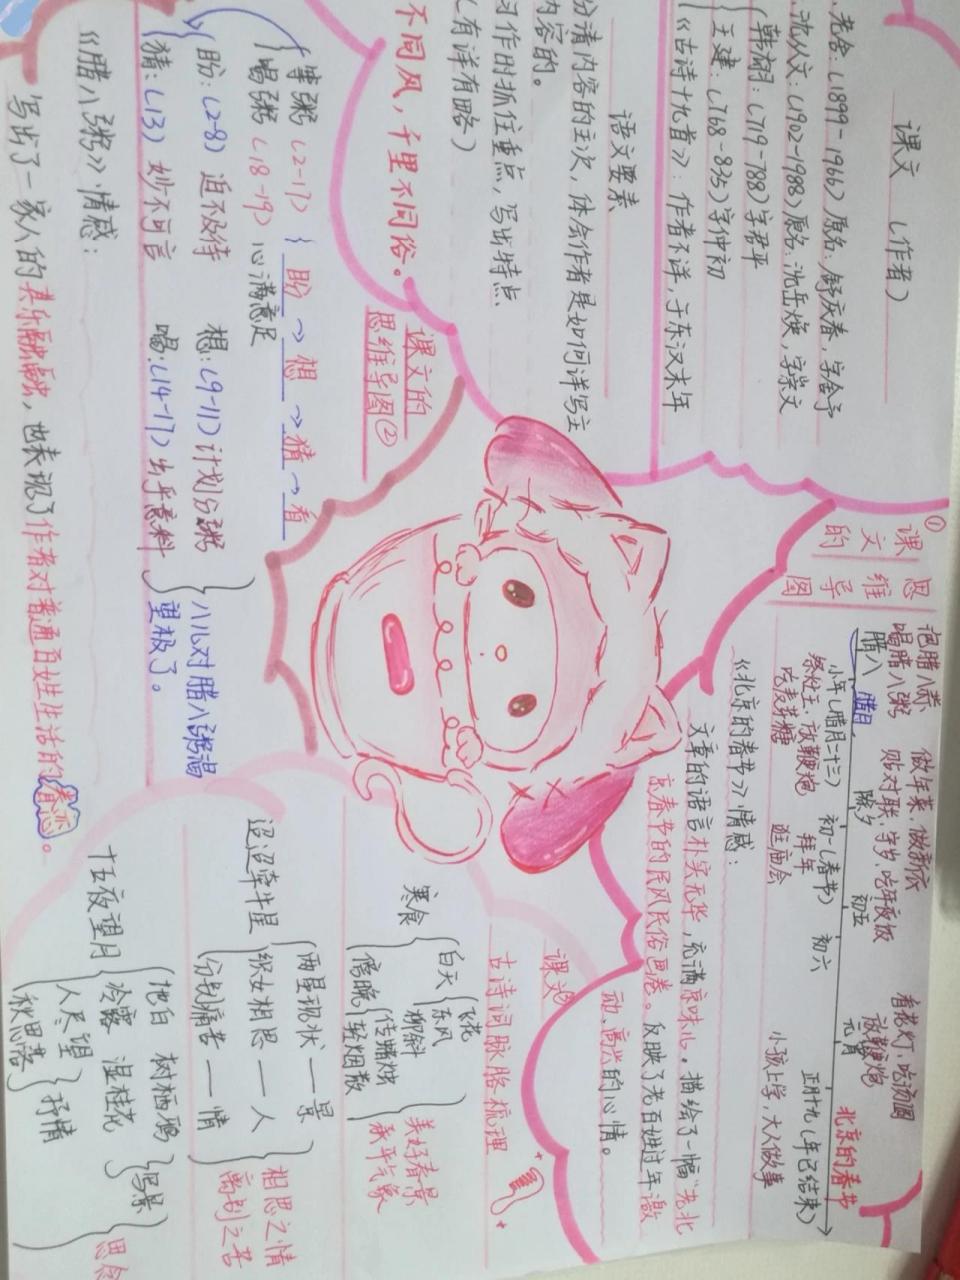 课文（作者）
老舍：（1899-1966）原名：舒庆春，字舍予
沈从文：（1902-1988）原名：沈岳焕，字崇文
韩翃：（719-788）字君平
王建：（768-835）字仲初
《古诗十九首》：作者不详，于东汉末年
语文要素
分清内容的主次，体会作者是如何详写主
内容的。
习作时抓住重点，写出特点
（有详有略）
不同风，千里不同俗。
①课文的
思维导图
泡腊八蒜
喝腊八粥
腊八
腊月
小年（腊月二十三）
祭灶王、放鞭炮
吃麦芽糖
做年菜、做新衣
贴对联、守岁、吃年夜饭
除夕
初一（春节）
拜年
逛庙会
初五
初六
看花灯、吃汤圆
放鞭炮
元宵
小孩上学，大人做事
正月十九（年已结束）
北京的春节
《北京的春节》情感：
文章的语言朴实无华，充满京味儿。描绘了一幅“老北
京春节的民风民俗画卷。反映了老百姓过年激
动、高兴的心情。
课文的
思维导图②
等粥（2-17）{盼→想→猜→看
喝粥（18-19）心满意足
盼：（2-8）迫不及待 想：（9-11）计划分粥
猜：（13）妙不可言 喝：（14-17）出乎意料
八儿对腊八粥渴
望极了。
《腊八粥》情感：
写出了一家人的其乐融融，也表现了作者对普通百姓生活的眷恋。
课文
古诗词脉络梳理
寒食
白天
飞花
东风
柳斜
美好春景
傍晚
传蜡烛
轻烟散
承平气象
迢迢牵牛星
两星现状——景
织女相思——人
分别痛苦——情
相思之情
离别之苦
十五夜望月
地白 树栖鸦
冷露 湿桂花
写景
人尽望
秋思落
抒情
思念